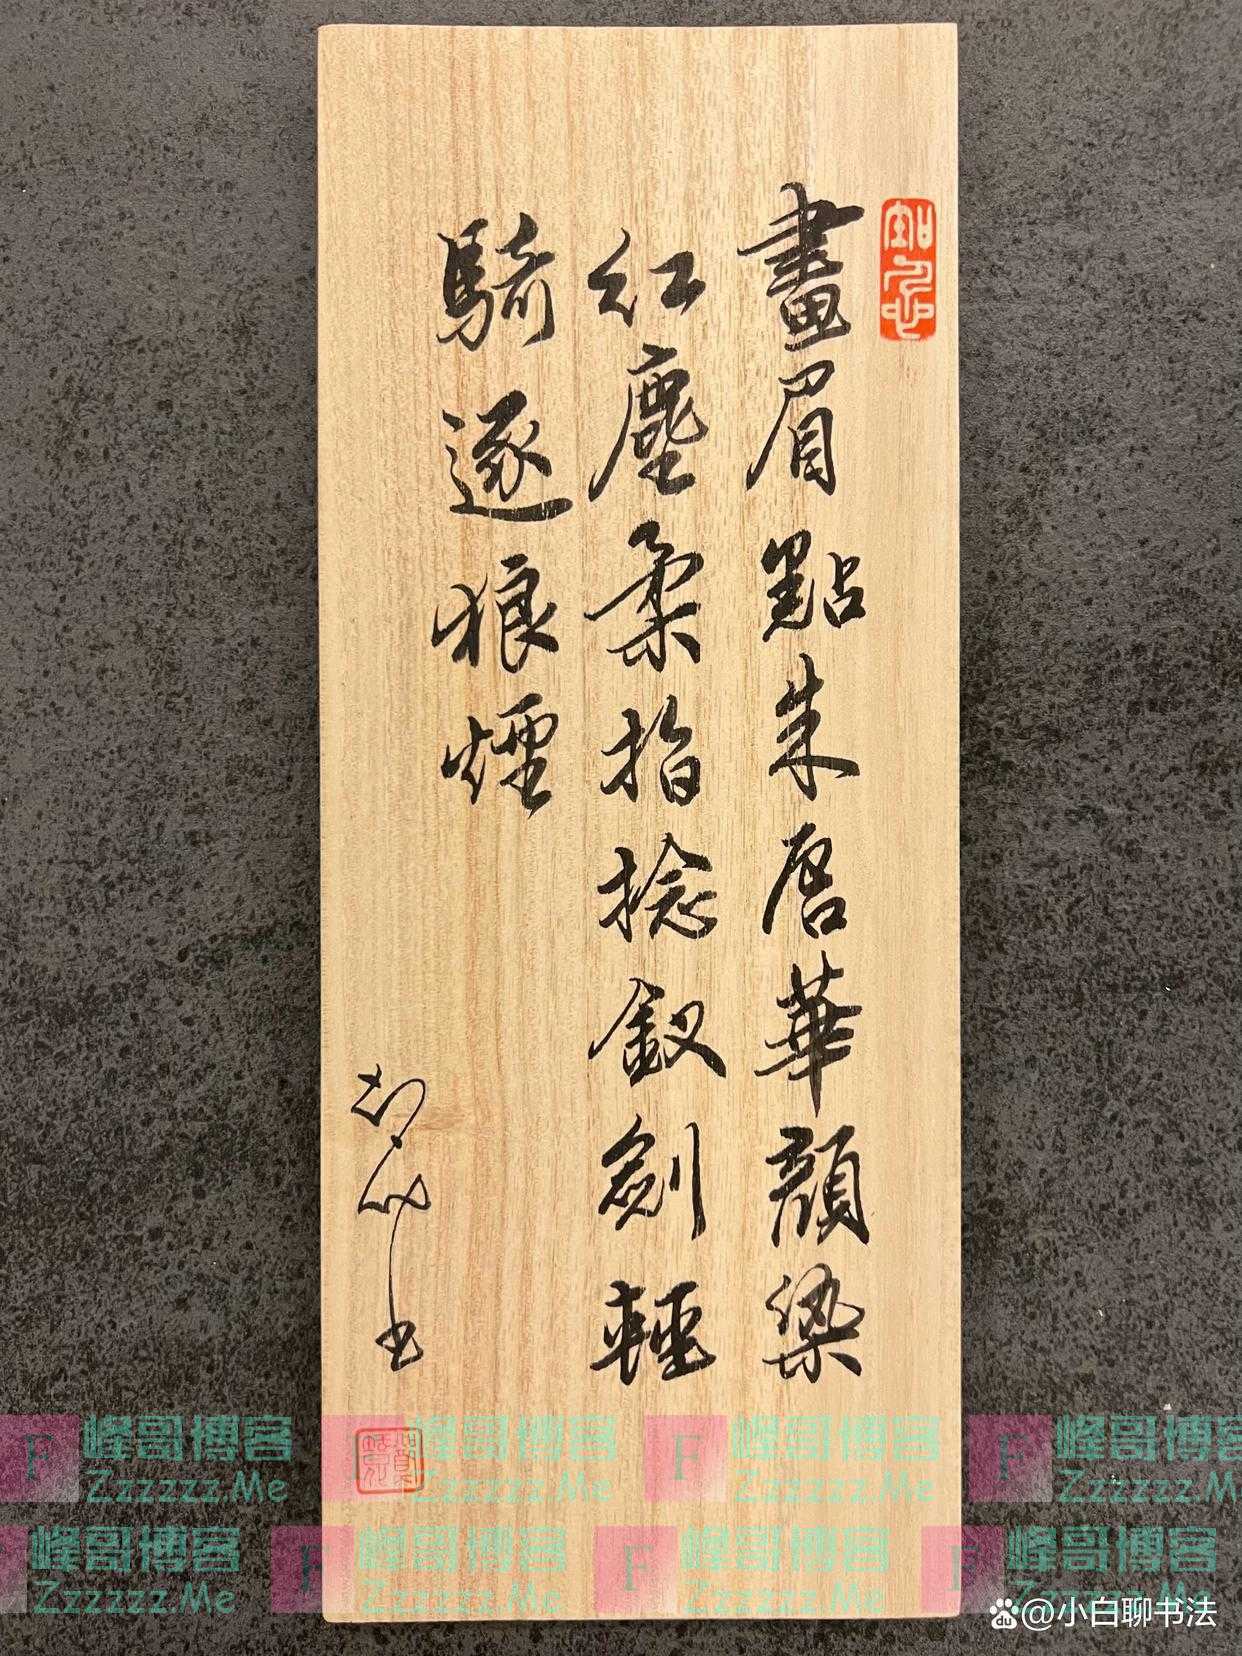 畫眉點朱唇華顏染
紅塵柔指捻釵劍輕
騎逐狼煙
書
峰哥博客 峰哥博客 峰哥博客 峰哥博客
Zzzzzz.Me Zzzzzz.Me Zzzzzz.Me Zzzzzz.Me
峰哥博客 峰哥博客 峰哥博客 峰哥博客
Zzzzzz.Me Zzzzzz.Me Zzzzzz.Me Zzzzzz.Me
@小白聊书法